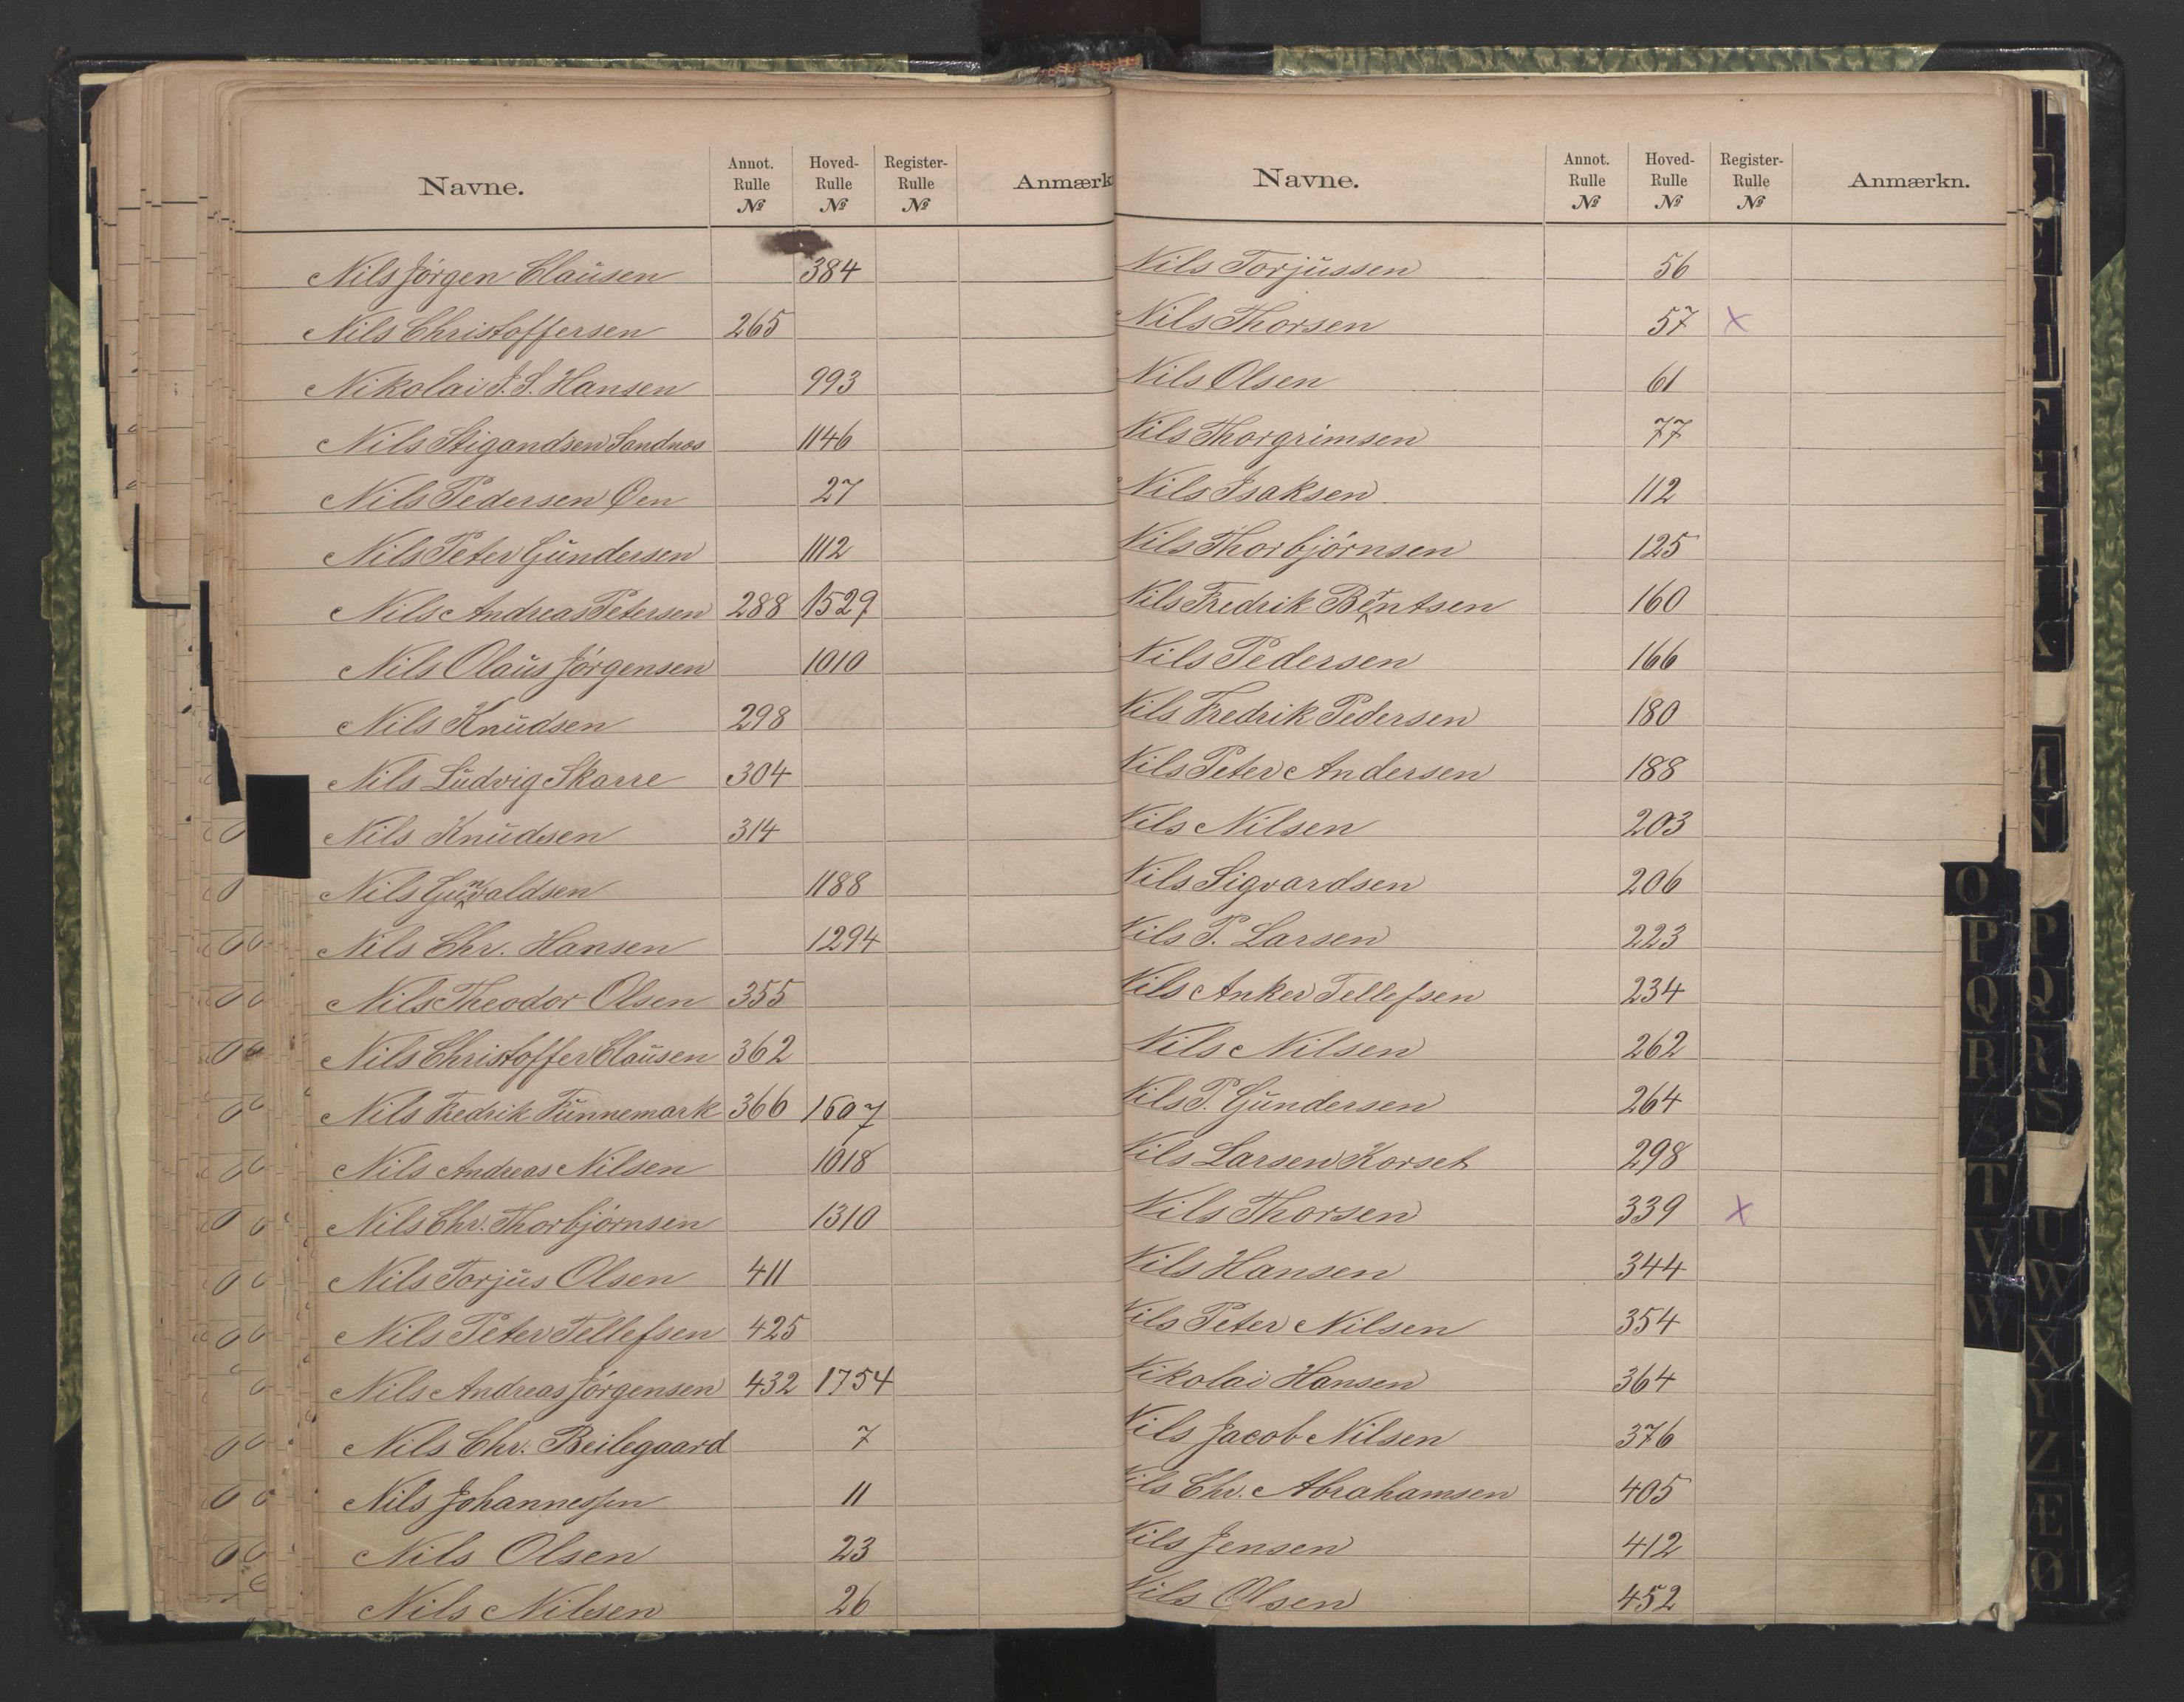 Navne. Annot. Rulle № Hoved-Rulle № Register-Rulle № Anmærk
Nils Jörgen Claŭsen 384
Nils Christoffersen 265
Nikolai J. S. Hansen 993
Nils Stigandsen Sandnes 1146
Nils Pedersen Øen 27
Nils Peter Gŭndersen 1112
Nils Andreas Petersen 288 1529
Nils Olaŭs Jörgensen 1010
Nils Knŭdsen 298
Nils Lŭdvig Skarre 304
Nils Knŭdsen 314
Nils Gŭnvaldsen 1188
Nils Chr. Hansen 1294
Nils Theodor Olsen 355
Nils Christoffer Claŭsen 362
Nils Fredrik Fŭnnemark 366 1607
Nils Andreas Nilsen 1018
Nils Chr. Thorbjörnsen 1310
Nils Torjŭs Olsen 411
Nils Peter Tellefsen 425
Nils Andreas Jörgensen 432 1754
Nils Chr. Beilegaard 7
Nils Johannessen 11
Nils Olsen 23
Nils Nilsen 26
Navne. Annot. Rulle № Hoved-Rulle № Register-Rulle № Anmærkn.
Nils Torjŭssen 56
Nils Thorsen 57 x
Nils Olsen 61
Nils Thorgrimsen 77
Nils Isaksen 112
Nils Thorbjörnsen 125
Nils Fredrik Berntsen 160
Nils Pedersen 166
Nils Fredrik Pedersen 180
Nils Peter Andersen 188
Nils Nilsen 203
Nils Sigvardsen 206
Nils P. Larsen 223
Nils Anker Tellefsen 234
Nils Nilsen 262
Nils P. Gŭndersen 264
Nils Larsen Korset 298
Nils Thorsen 339 x
Nils Hansen 344
Nils Peter Nilsen 354
Nikolai Hansen 364
Nils Jacob Nilsen 376
Nils Chr. Abrahamsen 405
Nils Jensen 412
Nils Olsen 452
O
P
Q
R
S
T
V
W
K
M
N
P
Q
R
S
U
W
X
Y
Z
Æ
Ø